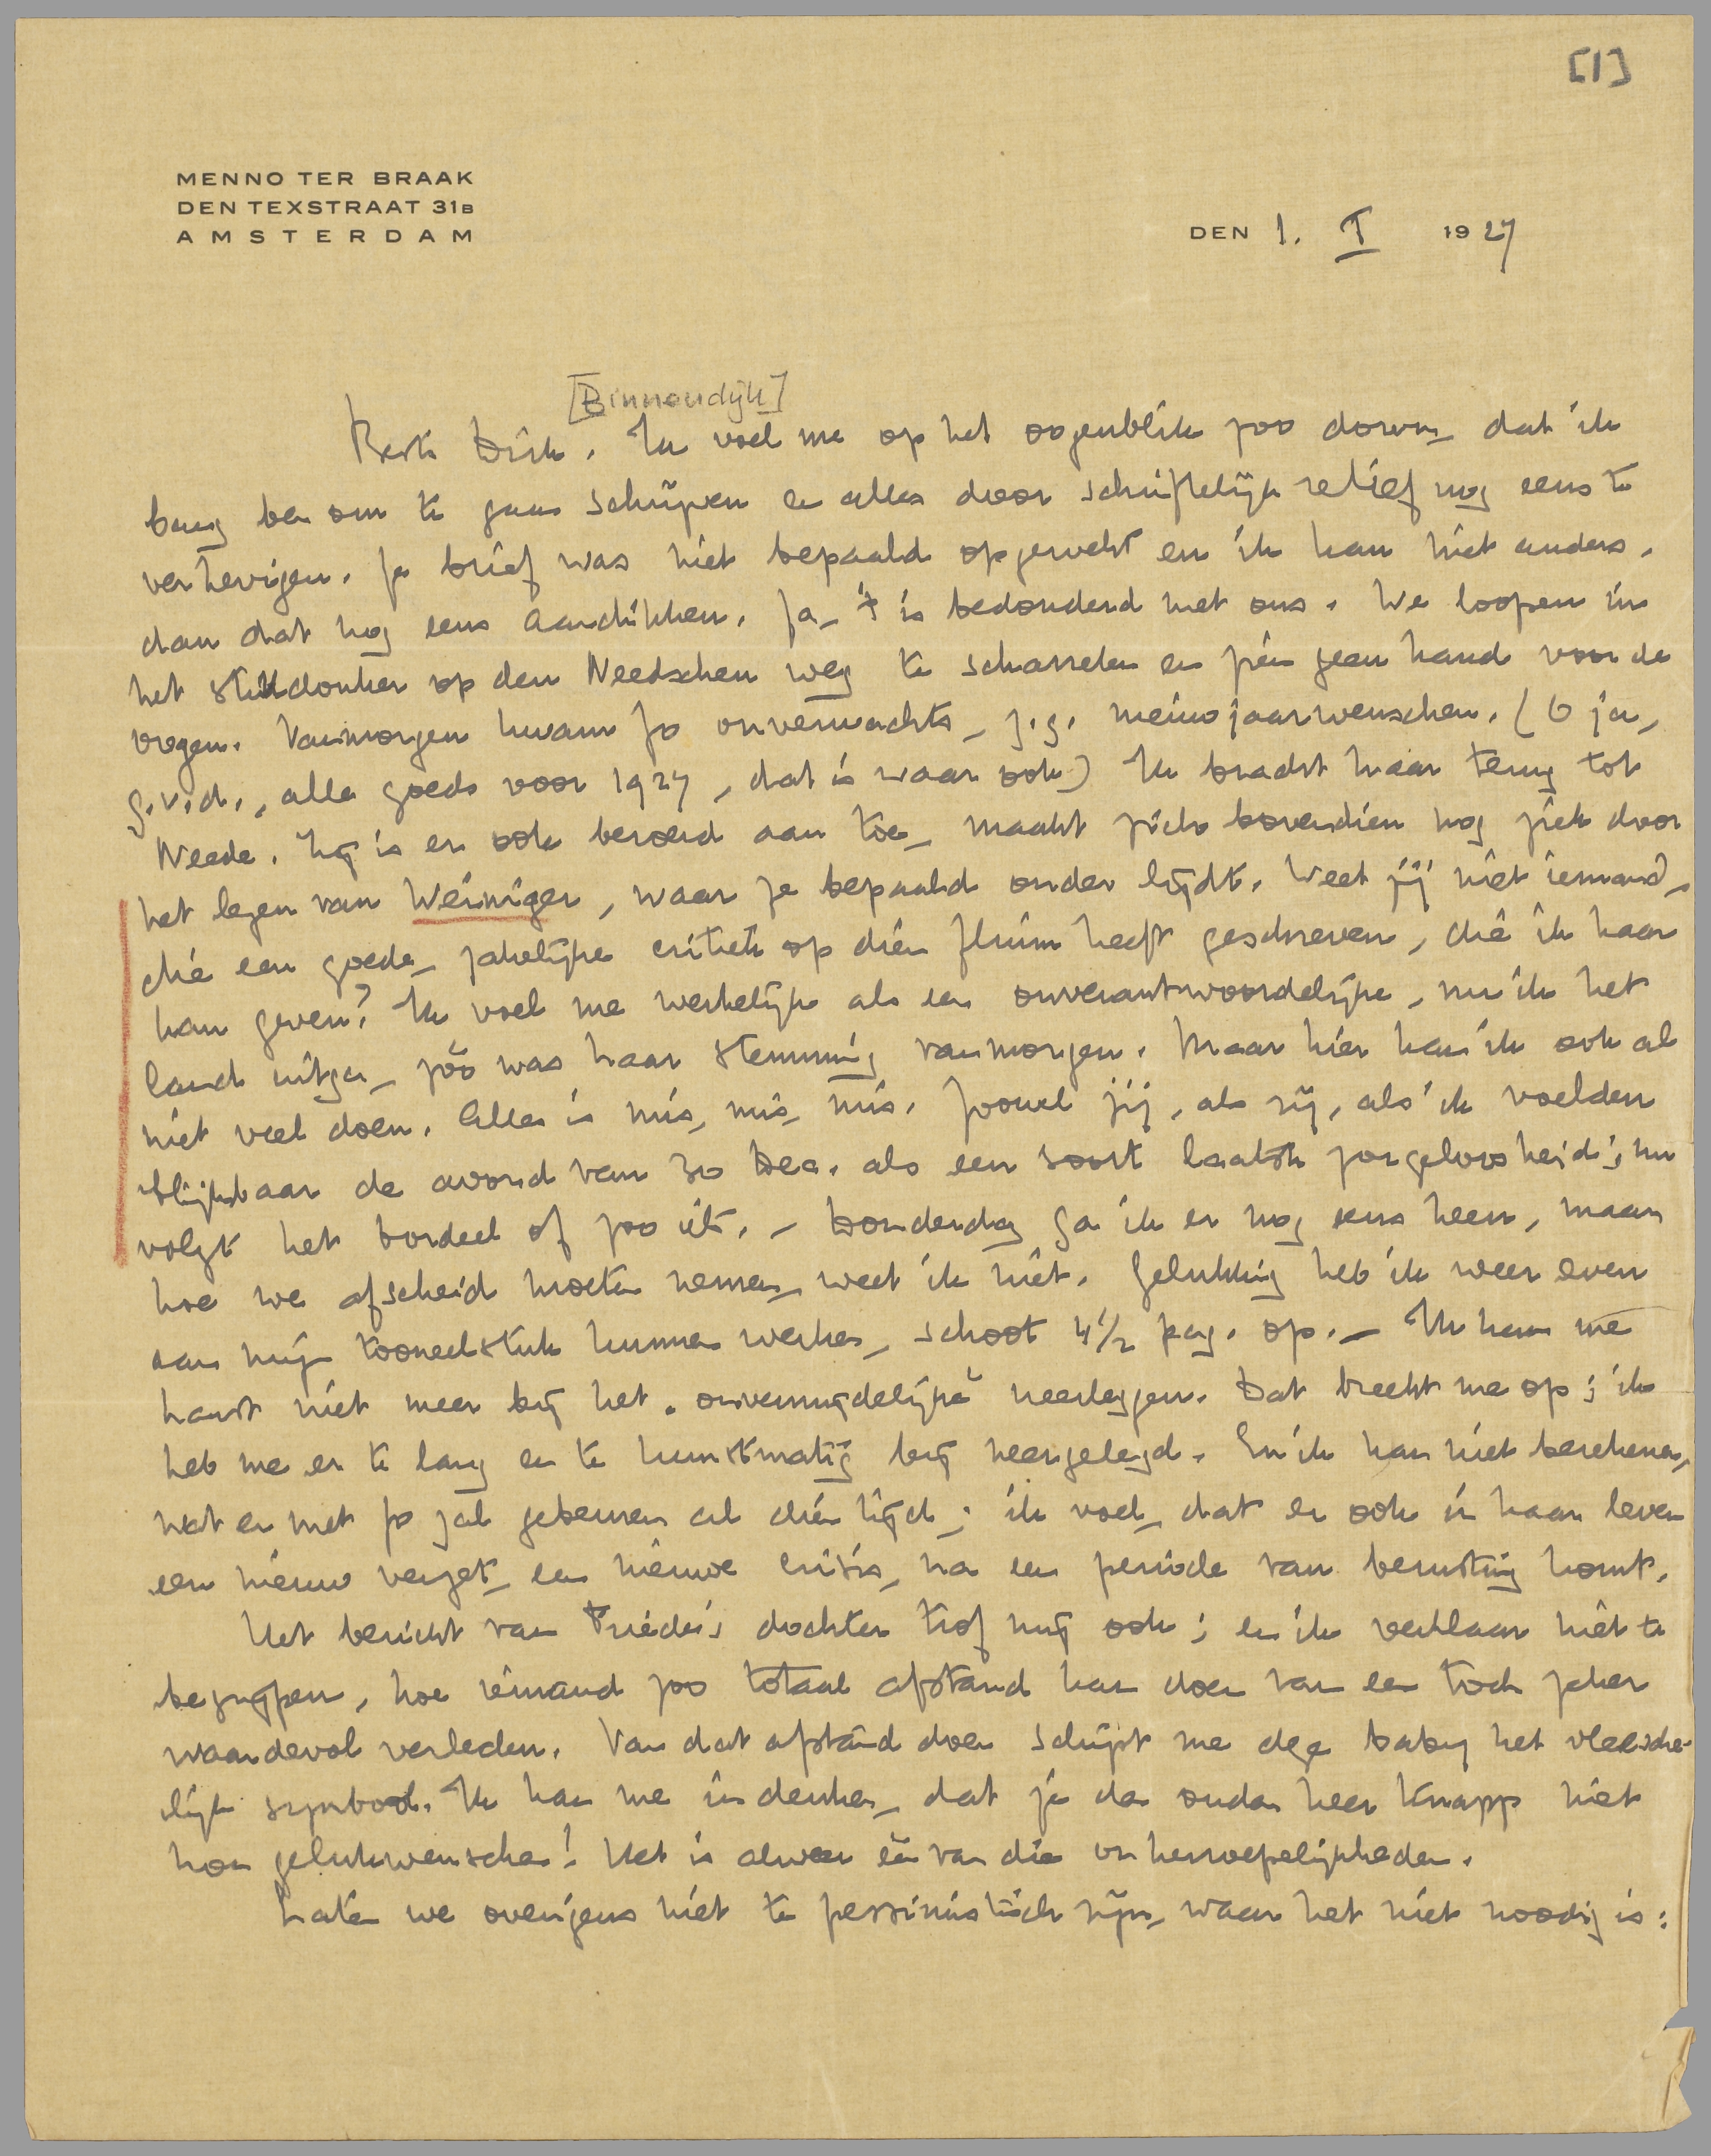 [1]
MENNO TER BRAAK
DEN TEXSTRAAT 31B
AMSTERDAM
DEN 1. I 1927
[Binnendijk]
Beste Dick. Ik voel me op het oogenblik zoo down, dat ik
bang ben om te gaan schrijven en alles door schriftelijk relief nog eens te
verhevigen. Je brief was niet bepaald opgewekt en ik kan niet anders,
dan dat nog eens aandikken. Ja, 't is bedonderd met ons. We loopen in
het stikdonker op den Needschen weg te scharrelen en zien geen hand voor de
oogen. Vanmorgen kwam Jo onverwachts, z.g. nieuwjaarwenschen. (O ja,
g.v.d., alle goeds voor 1927, dat is waar ook) Ik bracht haar terug tot
Neede. Zij is er ook beroerd aan toe, maakt zich bovendien nog ziek door
het lezen van Weininger, waar ze bepaald onder lijdt. Weet jij niet iemand,
die een goede, zakelijke critiek op dien fluim heeft geschreven, die ik haar
kan geven? Ik voel me werkelijk als een onverantwoordelijke, nu ik het
land uitga, zóó was haar stemming vanmorgen. Maar hier kan ik ook al
niet veel doen. Alles is mis, mis, mis. Zoowel jij, als zij, als ik voelden
blijkbaar de avond van 30 Dec. als een soort laatste zorgeloosheid; nu
volgt het bordeel of zoo iets. – Donderdag ga ik er nog eens heen, maar
hoe we afscheid moeten nemen, weet ik niet. Gelukkig heb ik weer even
aan mijn tooneelstuk kunnen werken, schoot 4 1/2 pag. op. – Ik kan me
haast niet meer bij het „onvermijdelijke" neerleggen. Dat breekt me op; ik
heb me er te lang en te kunstmatig bij neergelegd. En ik kan niet berekenen,
wat er met Jo zal gebeuren al dien tijd; ik voel, dat er ook in haar leven
een nieuw verzet, een nieuwe crisis, na een periode van berusting komt.
Het bericht van Friedi's dochter trof mij ook; en ik verklaar niet te
begrijpen, hoe iemand zoo totaal afstand kan doen van een toch zeker
waardevol verleden. Van dat afstand doen schijnt me deze baby het vleesche-
lijk symbool. Ik kan me indenken, dat je den ouden heer Knapp niet
kon gelukwenschen! Het is alweer één van die onherroepelijkheden.
Laten we overigens niet te pessimistisch zijn, waar het niet noodig is: